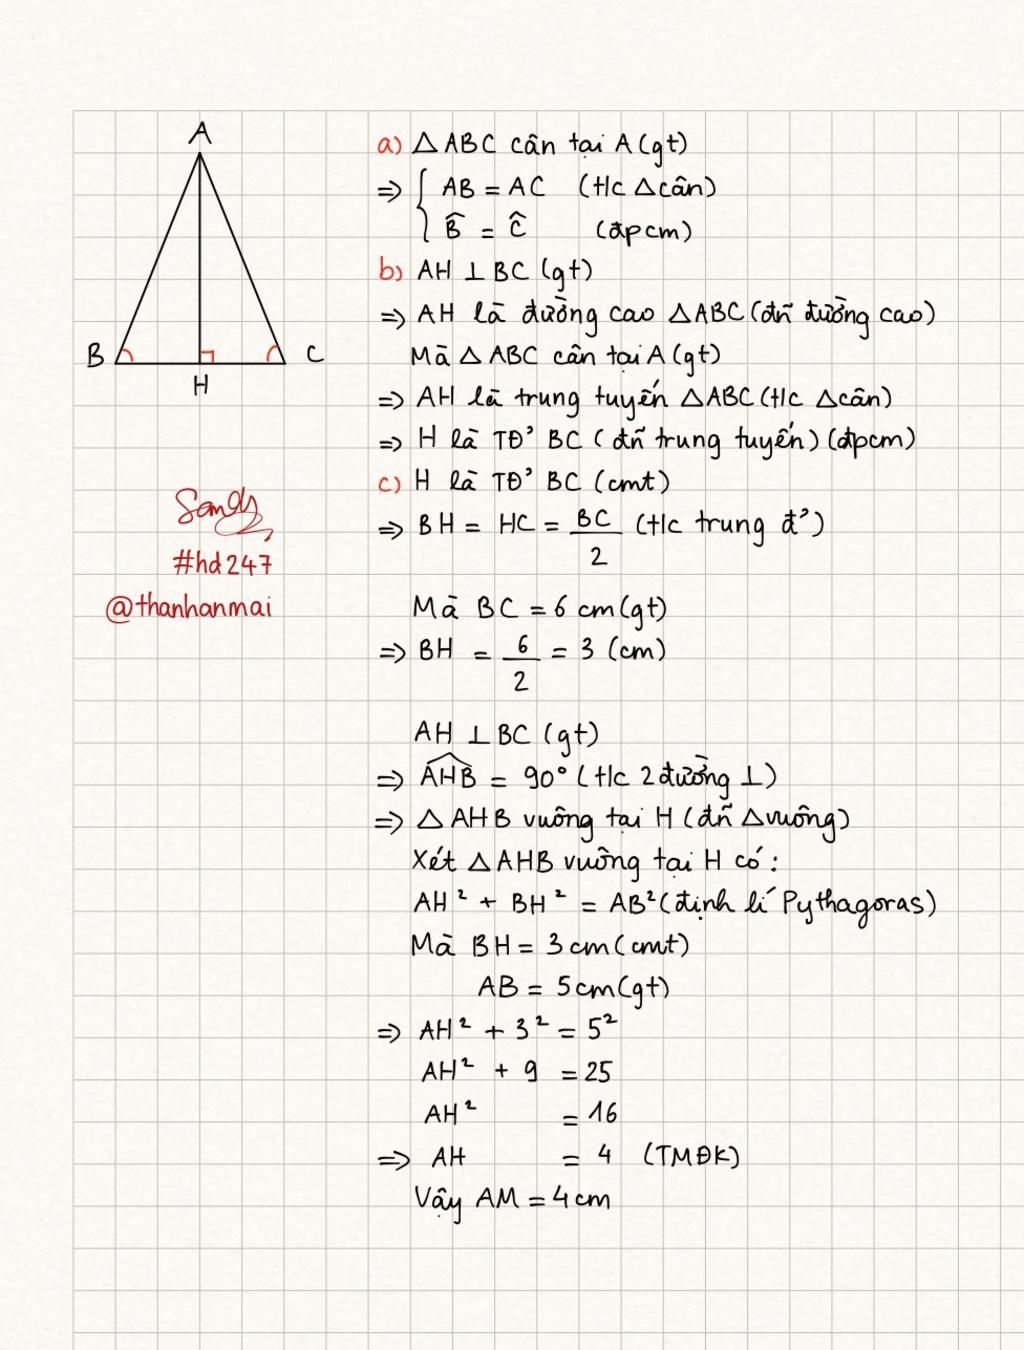 A
B
C
H
Sandy
#hd247
@thanhanmai
a) △ABC cân tại A (gt)
⇒ { AB = AC (t/c △cân)
B̂ = Ĉ (đpcm)
b) AH ⊥ BC (gt)
⇒ AH là đường cao △ABC (đn̄ đường cao)
Mà △ABC cân tại A (gt)
⇒ AH là trung tuyến △ABC (t/c △cân)
⇒ H là TĐ' BC (đn̄ trung tuyến) (đpcm)
c) H là TĐ' BC (cmt)
⇒ BH = HC = BC/2 (t/c trung đ')
Mà BC = 6 cm (gt)
⇒ BH = 6/2 = 3 (cm)
AH ⊥ BC (gt)
⇒ AHB̂ = 90° (t/c 2 đường ⊥)
⇒ △AHB vuông tại H (đn̄ △vuông)
Xét △AHB vuông tại H có:
AH² + BH² = AB² (định lí Pythagoras)
Mà BH = 3cm (cmt)
AB = 5cm (gt)
⇒ AH² + 3² = 5²
AH² + 9 = 25
AH² = 16
⇒ AH = 4 (TMĐK)
Vậy AM = 4cm